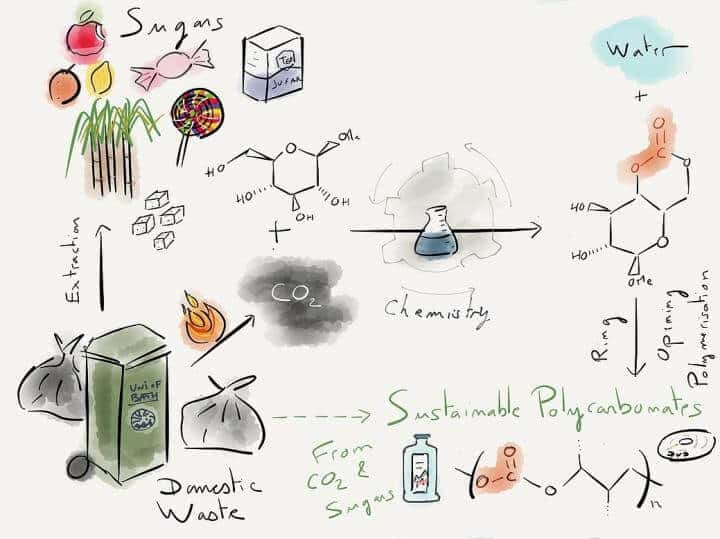 Sugars
TEA
SUGAR
Water
+
O
C
O
O
OMe
O
HO
HO
OH
OH
+
HO
HO
O
OMe
Extraction
CO2
Chemistry
Ring
Opining
Polymerisation
UNI OF
BATH
Domestic
Waste
Sustainable Polycarbonates
From
CO2 &
Sugars
O
O-C
O
n
DVD